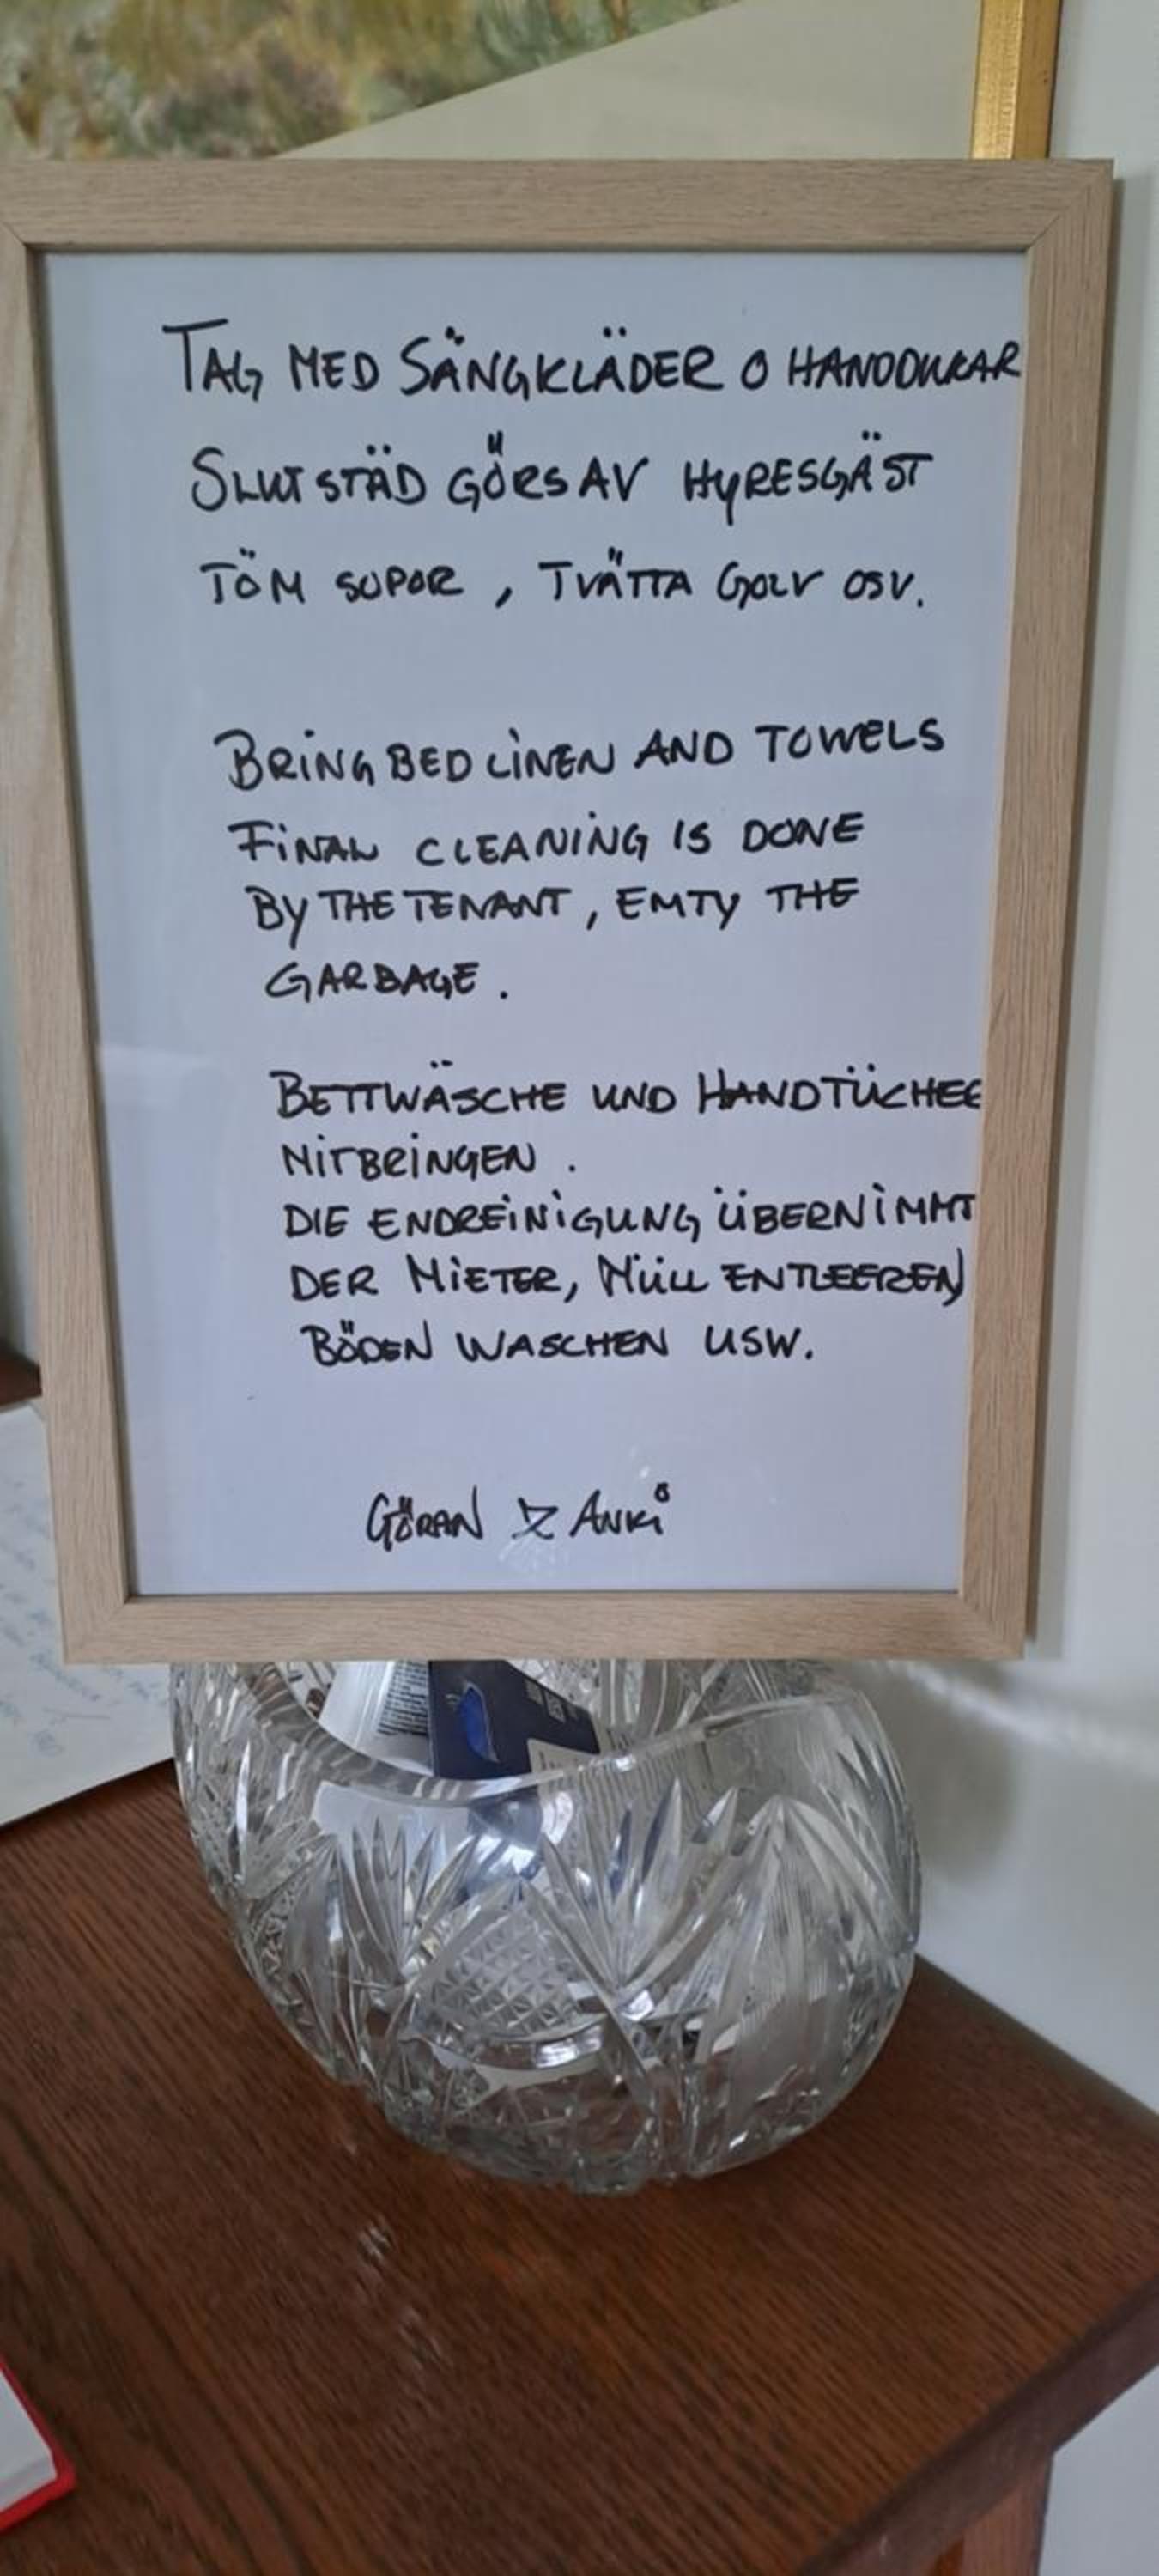 TAG MED SÄNGKLÄDER O HANDDUKAR
SLUTSTÄD GÖRS AV HYRESGÄST
TÖM SOPOR, TVÄTTA GOLV OSV.
BRING BED LINEN AND TOWELS
FINAL CLEANING IS DONE
BY THE TENANT, EMTY THE
GARBAGE.
BETTWÄSCHE UND HANDTÜCHER
MITBRINGEN.
DIE ENDREINIGUNG ÜBERNIMMT
DER MIETER, MÜLL ENTLEEREN,
BÖDEN WASCHEN USW.
GÖRAN & ANKI